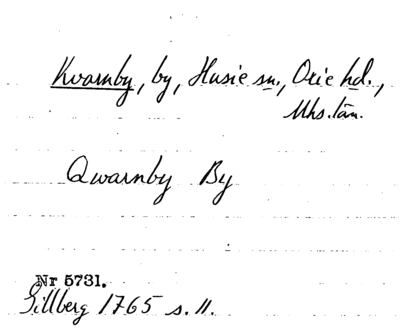 Kvarnby, by, Husie sn, Oxie hd.,
Mhs. län.
Qwarnby By
Nr 5731.
Gillberg 1765 s. 11.